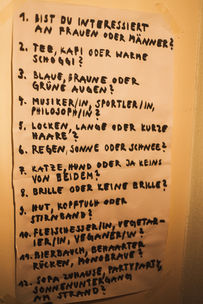 1. BIST DU INTERESSIERT
AN FRAUEN ODER MÄNNER?
2. TEE, KAFI ODER WARME
SCHOGGI?
3. BLAUE, BRAUNE ODER
GRÜNE AUGEN?
4. MUSIKER/IN, SPORTLER/IN,
PHILOSOPH/IN?
5. LOCKEN, LANGE ODER KURZE
HAARE?
6. REGEN, SONNE ODER SCHNEE?
7. KATZE, HUND ODER JA KEINS
VON BEIDEM?
8. BRILLE ODER KEINE BRILLE?
9. HUT, KOPFTUCH ODER
STIRNBAND?
10. FLEISCHESSER/IN, VEGETAR-
IER/IN, VEGANER/IN?
11. BIERBAUCH, BEHAARTER
RÜCKEN, MONOBRAUE?
12. SOFA ZUHAUSE, PARTYPARTY,
SONNENUNTERGANG
AM STRAND?